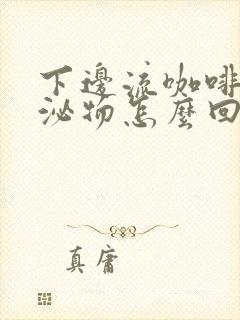 下邊流咖啡
泌物怎麼回
真庸